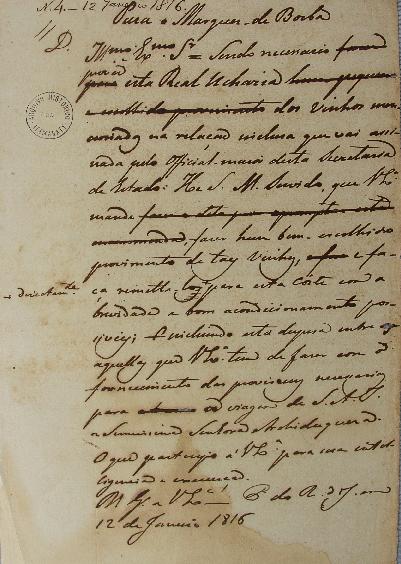 N. 4 - 12 Janeiro 1816.
Para o Marquez de Borba
D. Illmo. Exmo. Sr. = Sendo necessario fazer
para esta Real Ucharia hum pequeno
e escolhido provimento dos vinhos men-
cionados na relação inclusa que vai assi-
nada pelo Official maior desta Secretaria
de Estado: He S. M. Servido, que V. Exa.
mande fazer hum bem escolhido
provimento de taes vinhos, e fa-
ça remetter logo para esta Côrte com a
+ directamte.
brevidade e bom acondicionamento
incluindo esta despeza entre
aquellas que V. Exa. tem de fazer com o
fornecimento das provisoens necessarias
para a viagem de S. A. R.
a Serenissima Senhora Archiduqueza.
O que participo a V. Exa. para sua intel-
ligencia e execução.
D. G. a V. Exa. P. do R. de Jan.
12 de Janeiro 1816